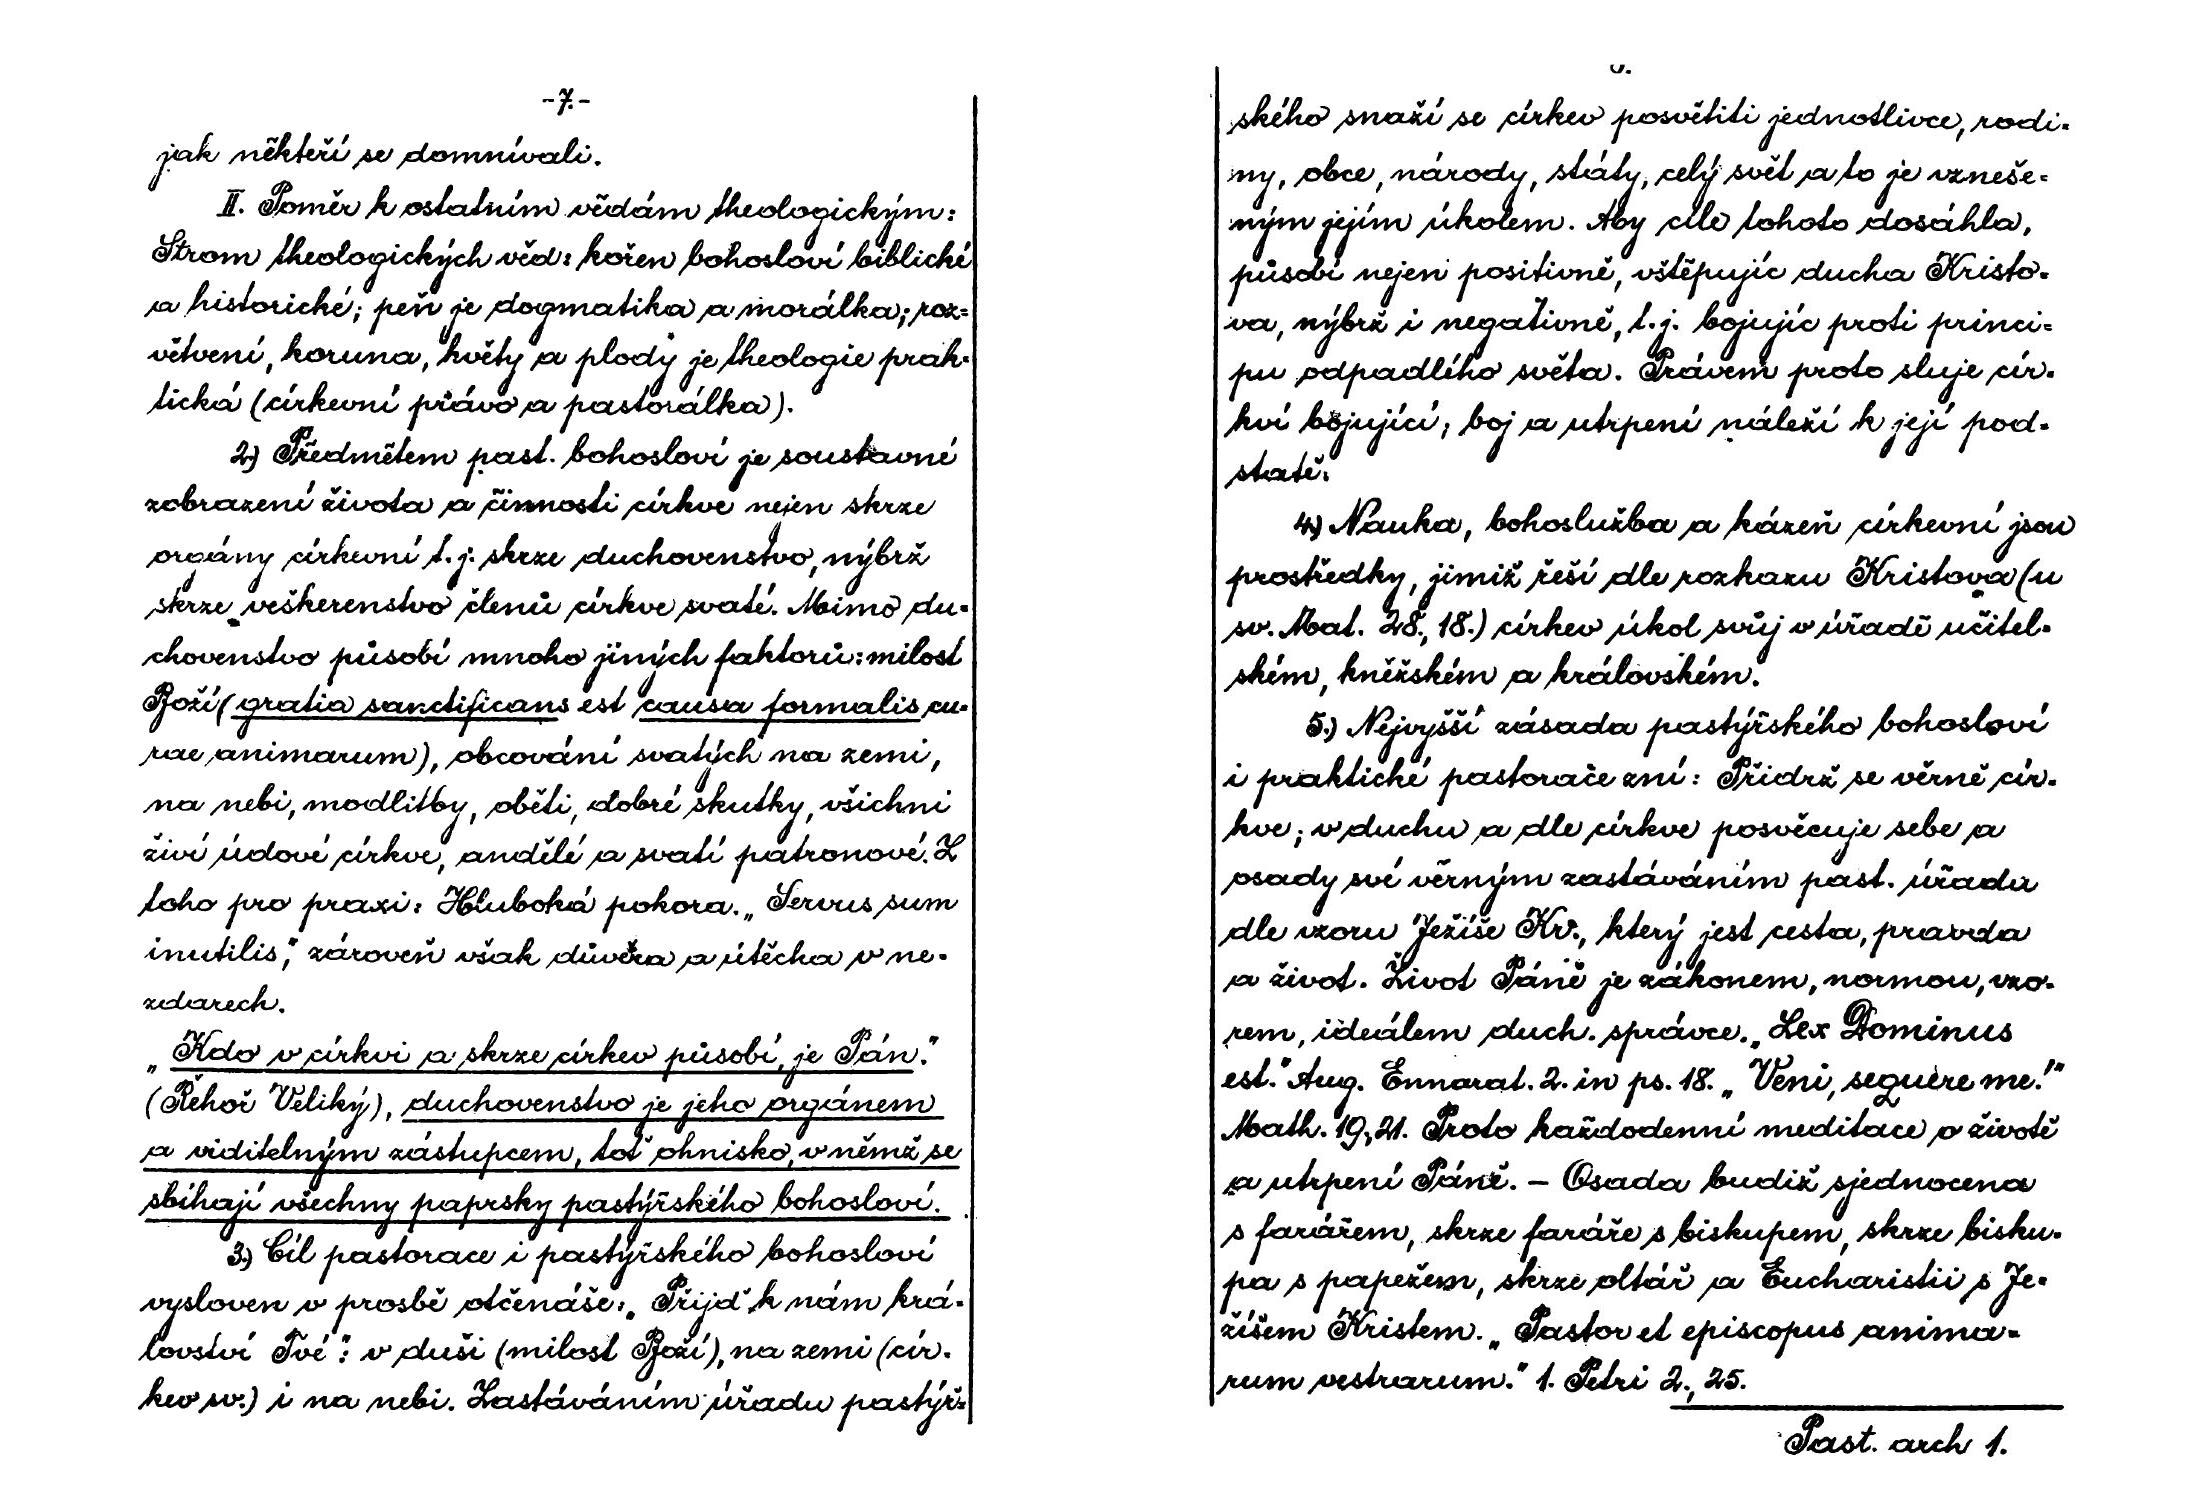 -7.-
jak někteří se domnívali.
II. Poměr k ostatním vědám theologickým:
Strom theologických věd: kořen bohosloví biblické
a historické; peň je dogmatika a morálka; roz=
větvení, koruna, květy a plody je theologie prak-
tická (církevní právo a pastorálka).
2.) Předmětem past. bohosloví je soustavné
zobrazení života a činnosti církve nejen skrze
orgány církevní t.j. skrze duchovenstvo, nýbrž
skrze veškerenstvo členů církve svaté. Mimo du-
chovenstvo působí mnoho jiných faktorů: milost
Boží (gratia sanctificans est causa formalis cu-
rae animarum), obcování svatých na zemi,
na nebi, modlitby, oběti, dobré skutky, všichni
živí údové církve, andělé a svatí patronové. Z
toho pro praxi: Hluboká pokora. „Servus sum
inutilis", zároveň však důvěra a útěcha v ne-
zdarech.
„Kdo v církvi a skrze církev působí, je Pán."
(Řehoř Veliký), duchovenstvo je jeho orgánem
a viditelným zástupcem, toť ohnisko, v němž se
sbíhají všechny paprsky pastýřského bohosloví.
3.) Cíl pastorace i pastýřského bohosloví
vysloven v prosbě otčenáše: „Přijď k nám krá-
lovství Tvé": v duši (milost Boží), na zemi (cír-
kev sv.) i na nebi. Zastáváním úřadu pastýř=
ského snaží se církev posvětiti jednotlivce, rodi-
ny, obce, národy, státy, celý svět a to je vzneše=
ným jejím úkolem. Aby cíle tohoto dosáhla,
působí nejen positivně, vštěpujíc ducha Kristo-
va, nýbrž i negativně, t.j. bojujíc proti princi=
pu odpadlého světa. Právem proto sluje cír-
kví bojující; boj a utrpení náleží k její pod-
statě.
4.) Nauka, bohoslužba a kázeň církevní jsou
prostředky, jimiž řeší dle rozkazu Kristova (u
sv. Mat. 28., 18.) církev úkol svůj v úřadě učitel-
ském, kněžském a královském.
5.) Nejvyšší zásada pastýřského bohosloví
i praktické pastorače zní: Přidrž se věrně cír-
kve; v duchu a dle církve posvěcuje sebe a
osady své věrným zastáváním past. úřadu
dle vzoru Ježíše Kr., který jest cesta, pravda
a život. Život Páně je zákonem, normou, vzo-
rem, ideálem duch. správce. „Lex Dominus
est." Aug. Ennarat. 2. in ps. 18. „Veni, sequere me!"
Math. 19., 21. Proto každodenní meditace o životě
a utrpení Páně. – Osada budiž sjednocena
s farářem, skrze faráře s biskupem, skrze bisku-
pa s papežem, skrze oltář a Eucharistii s Je-
žíšem Kristem. „Pastor et episcopus anima-
rum vestrarum." 1. Petri 2., 25.
Past. arch 1.